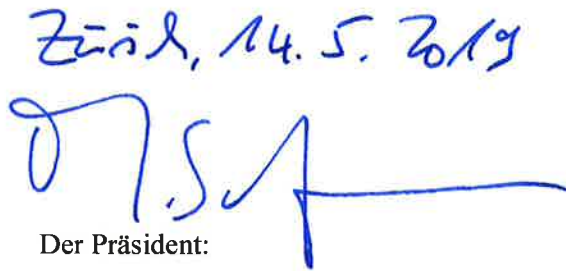 Zürich, 14. 5. 2019
Der Präsident: